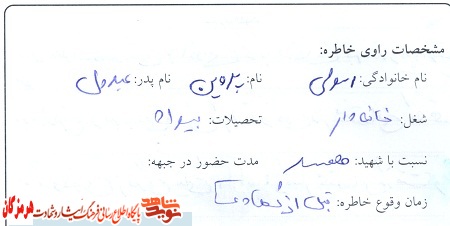 مشخصات راوی خاطره:
نام خانوادگی: رسولی نام: پروین نام پدر:
شغل: خانه دار تحصیلات: بیسواد
نسبت با شهید: همسر مدت حضور در جبهه:
زمان وقوع خاطره: قبل از شهادت
شاهد نوید پایگاه اطلاع رسانی فرهنگ ایثار و شهادت هرمزگان